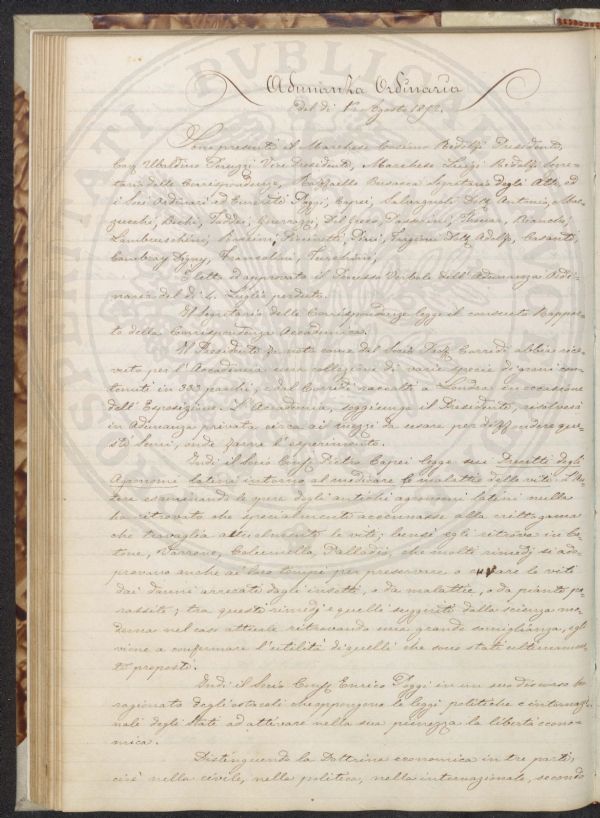 Adunanza Ordinaria
del dì 1º Agosto 1852.
Sono presenti il Marchese Cosimo Ridolfi Presidente,
Cav. Ubaldino Peruzzi Vice Presidente, Marchese Luigi Ridolfi Segre-
tario delle Corrispondenze, Raffaello Busacca Segretario degli Atti ed
i Soci Ordinari ed Emeriti Poggi, Capei, Salvagnoli Dott. Antonio,
Bechi, Taddei, Guerrazzi, Del Greco, Passerini,
Lambruschini, Parrini, Pini, Targioni Dott. Adolfo, Casanti,
Cambray Digny, Franceschini, Turchini,
Letto ed approvato il Processo Verbale dell'Adunanza Ordi-
naria del dì 4. Luglio perduto.
Il Segretario delle Corrispondenze legge il consueto Rappor-
to della Corrispondenza Accademica.
Il Presidente fa nota come dal Socio Prof. Corridi abbia rice-
vuto per l'Accademia una collezione di varie specie di grani con-
tenuti in 333 pacchi, dal Corridi raccolti a Londra in occasione
dell'Esposizione. L'Accademia, soggiunge il Presidente, risolverà
in Adunanza privata circa ai mezzi da usare per diffondere que-
sti semi, onde farne l'esperimento.
Indi il Socio Conf. Pietro Capei legge sui Precetti degli
Agronomi latini intorno al medicare le malattie delle viti. L'Au-
tore esaminando le opere degli antichi agronomi latini nulla
ha ritrovato che specialmente accennasse alla crittogama
che travaglia attualmente le viti; bensì egli ritrova in Ca-
tone, Varrone, Columella, Palladio, che molti rimedj si ado-
pravano anche ai loro tempi per preservare o curare le viti
dai danni arrecati dagli insetti, o da malattie, o da piante pa-
rassite; tra questi rimedj e quelli suggeriti dalla scienza mo-
derna nel caso attuale ritrovando una grande somiglianza, egli
viene a confermare l'utilità di quelli che sono stati ultimamen-
te proposti.
Indi il Socio Conf. Enrico Poggi in un suo discorso ha
ragionato degli ostacoli che oppongono le leggi politiche e internazio-
nali degli Stati ad attivare nella sua pienezza la libertà econo-
mica.
Distinguendo la Dottrina economica in tre parti,
cioè nella civile, nella politica, nella internazionale, secondo